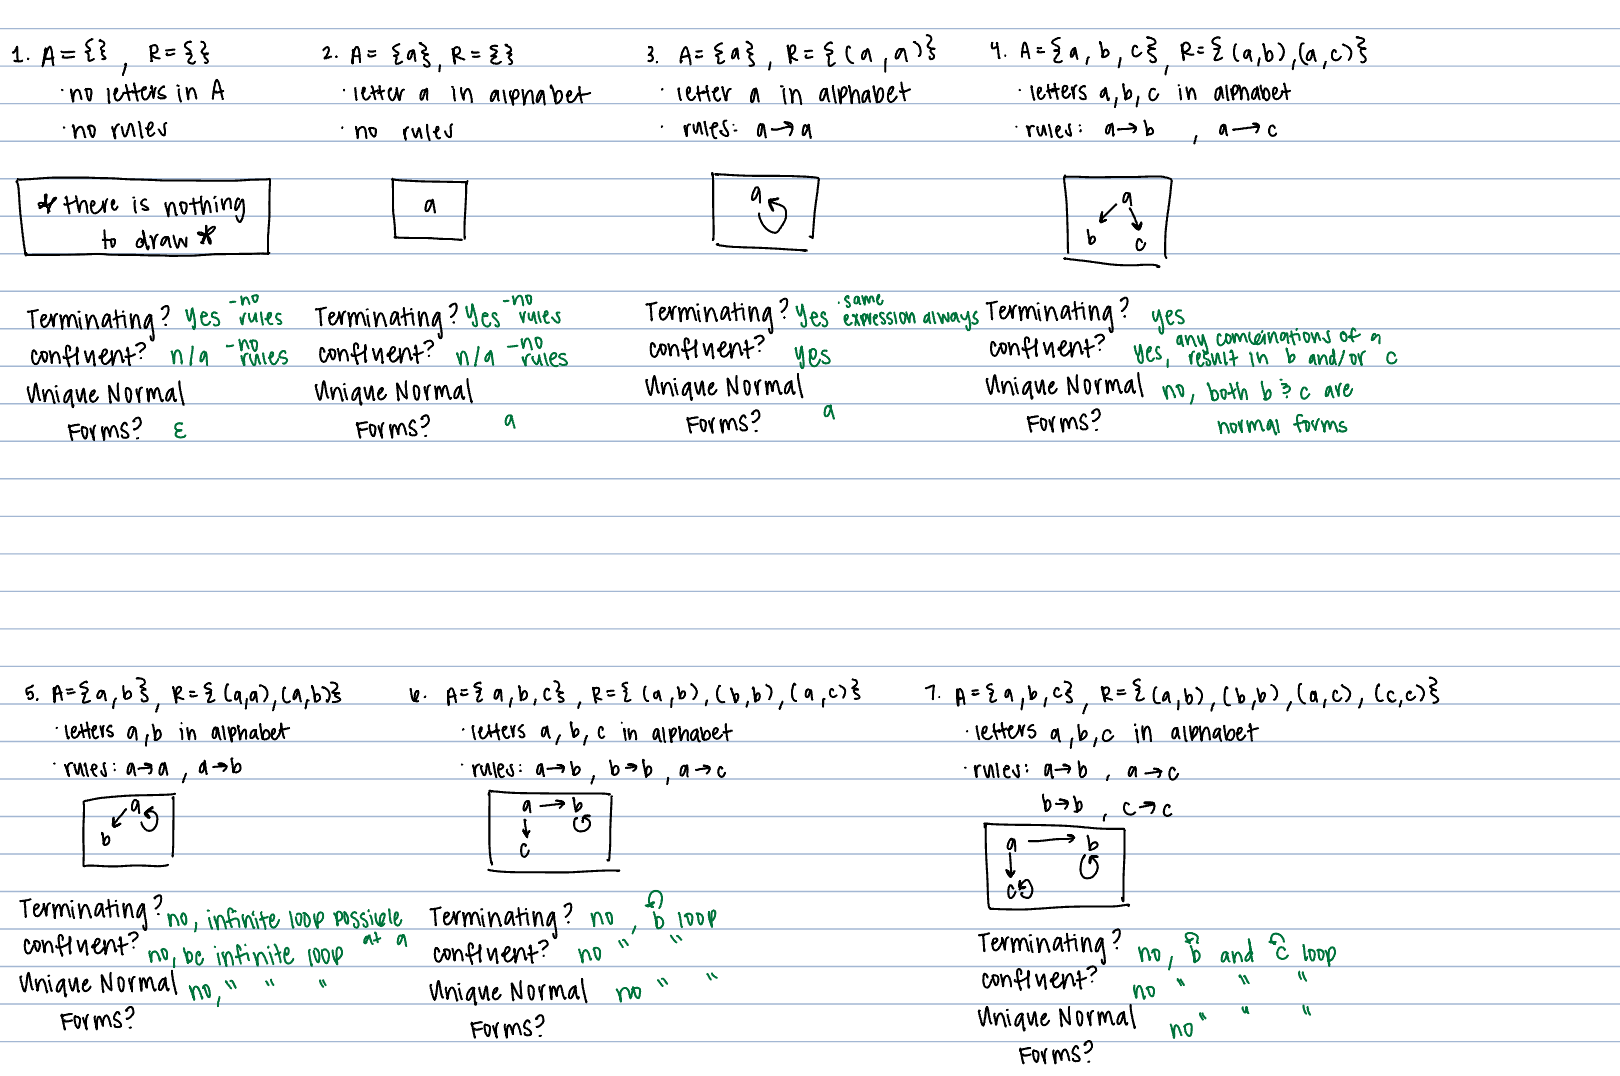 1. A={} , R={}
·no letters in A
·no rules
*there is nothing
to draw*
Terminating? yes -no rules
confluent? n/a -no rules
Unique Normal
Forms? ε
2. A= {a}, R={}
·letter a in alphabet
·no rules
a
Terminating? yes -no rules
confluent? n/a -no rules
Unique Normal
Forms? a
3. A={a} , R={(a,a)}
·letter a in alphabet
·rules: a→a
a
Terminating? yes ·same expression always
confluent? yes
Unique Normal
Forms? a
4. A={a, b, c}, R={(a,b),(a,c)}
·letters a,b,c in alphabet
·rules: a→b , a→c
a
b c
Terminating? yes
confluent? yes, any combinations of a result in b and/or c
Unique Normal no, both b & c are
Forms? normal forms
5. A={a,b}, R={(a,a),(a,b)}
·letters a,b in alphabet
·rules: a→a , a→b
a
b
Terminating? no, infinite loop possible
confluent? no, bc infinite loop at a
Unique Normal no, " " "
Forms?
6. A={a,b,c}, R={(a,b),(b,b),(a,c)}
·letters a, b, c in alphabet
·rules: a→b, b→b, a→c
a → b
↓
c
Terminating? no, b loop
confluent? no " "
Unique Normal no " "
Forms?
7. A={a,b,c}, R={(a,b),(b,b),(a,c),(c,c)}
·letters a,b,c in alphabet
·rules: a→b , a→c
b→b , c→c
a → b
↓
c
Terminating? no, b and c loop
confluent? no " " "
Unique Normal no " " "
Forms?